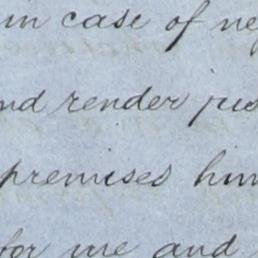 in case of
and render
premises
for me and